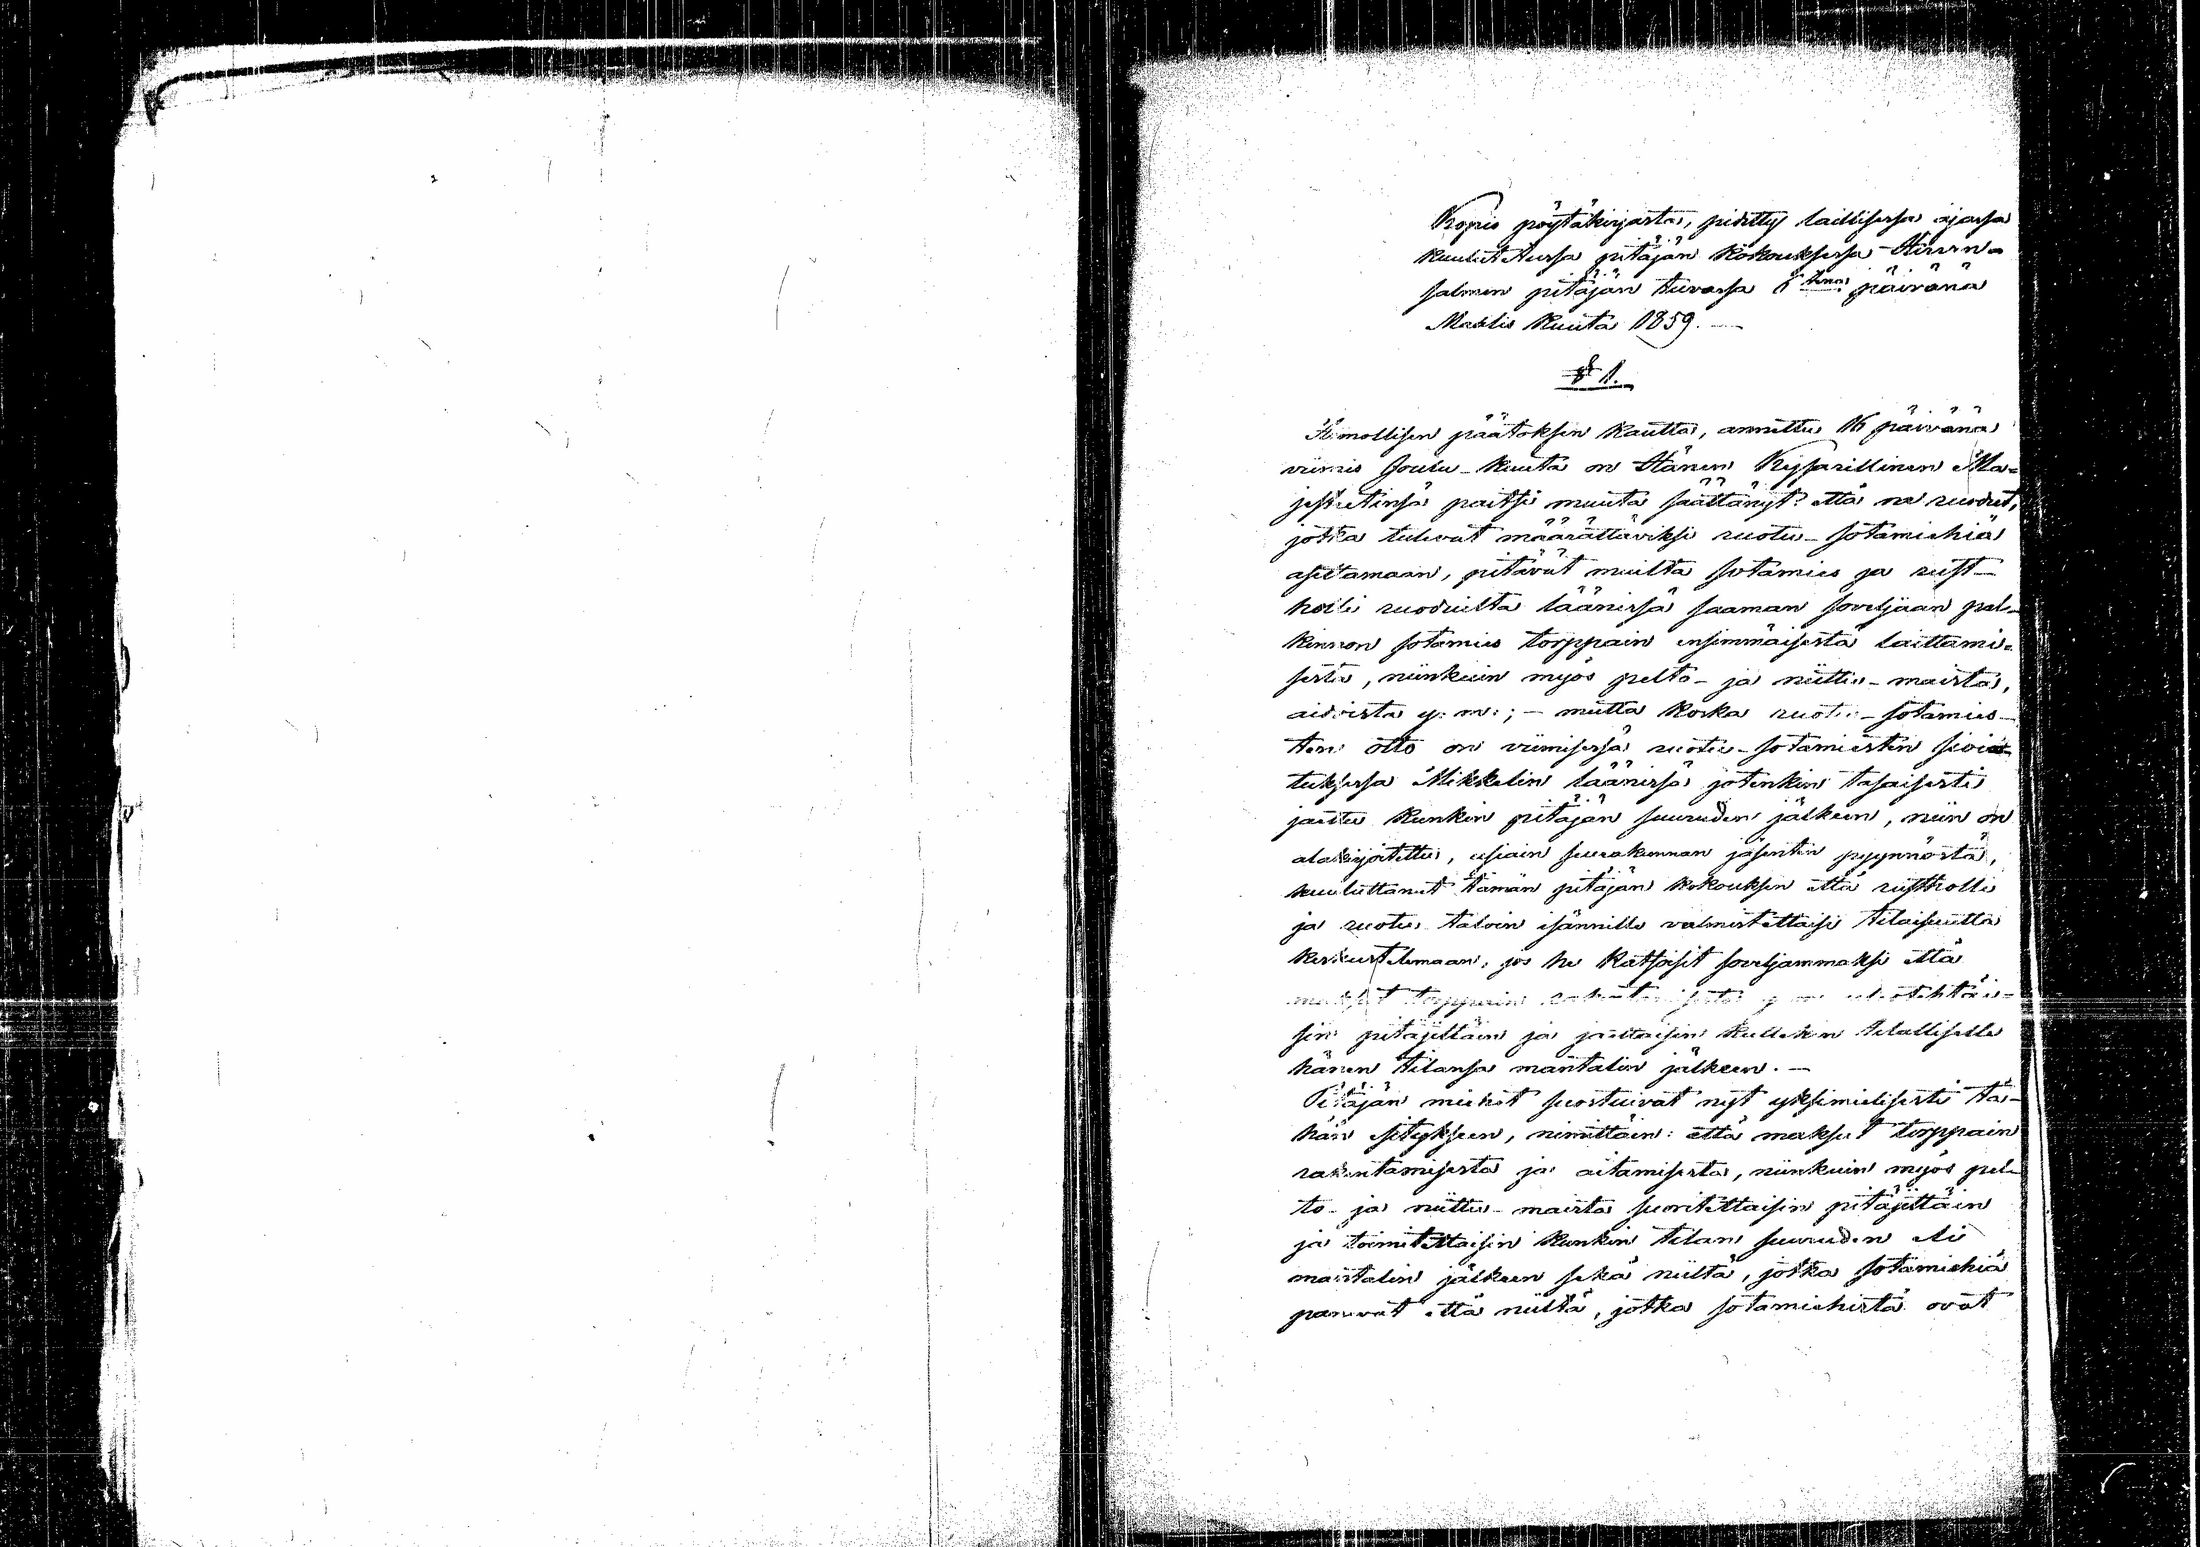 Kopio pöytäkirjasta, pidetty laillisessa ajassa
kuulutetussa pitäjän kokouksessa Hirven-
salmen pitäjän tuvassa 6 tena päivänä
Maalis kuuta 1859. —
§ 1.
Armollisen päätöksen kautta, annettu 16 päivänä
viimis Joulu-kuuta on Hänen Keisarillinen Ma-
jestetinsä paitsi muuta säättänyt: että ne ruodut,
jotka tulevat määrättäviksi ruotu-sotamiehiä
asettamaan, pitävät muilta sotamies ja rust-
holli ruoduilta läänissä saaman soveljaan pal-
kinnon sotamies torppain ensimmäisestä laittami-
sesta, niinkuin myös pelto- ja niittu-maista,
aidoista y. m.; — mutta koska ruotu-sotamies-
ten otto on viimisessä ruotu-sotamiesten
tuksessa Mikkelin läänissä jotenkin tasaisesti
jaettu kunkin pitäjän suuruden jälkeen, niin on
alakirjoitettu, usiain seurakunnan jäsenten pyynnöstä,
kuuluttanut tämän pitäjän kokouksen että rustholli
ja ruotu taloin isännille valmistettaisi tilaisuutta
keskustelemaan, jos he katsoisit soveljammaksi että
maksut torppain rakentamisesta y. m. ulostehtäi-
sin pitäjittäin ja jaettaisin kullekin tilalliselle
hänen tilansa mantalin jälkeen. —
Pitäjän miehet suostuivat nyt yksimielisesti tä-
hän esitykseen, nimittäin: että maksut torppain
rakentamisesta ja aitamisesta, niinkuin myös pel-
to- ja niittu-maista suoritettaisin pitäjittäin
ja toimitettaisin kunkin tilan suuruden eli
mantalin jälkeen sekä niiltä, jotka sotamiehiä
panevat että niiltä, jotka sotamiehistä ovat